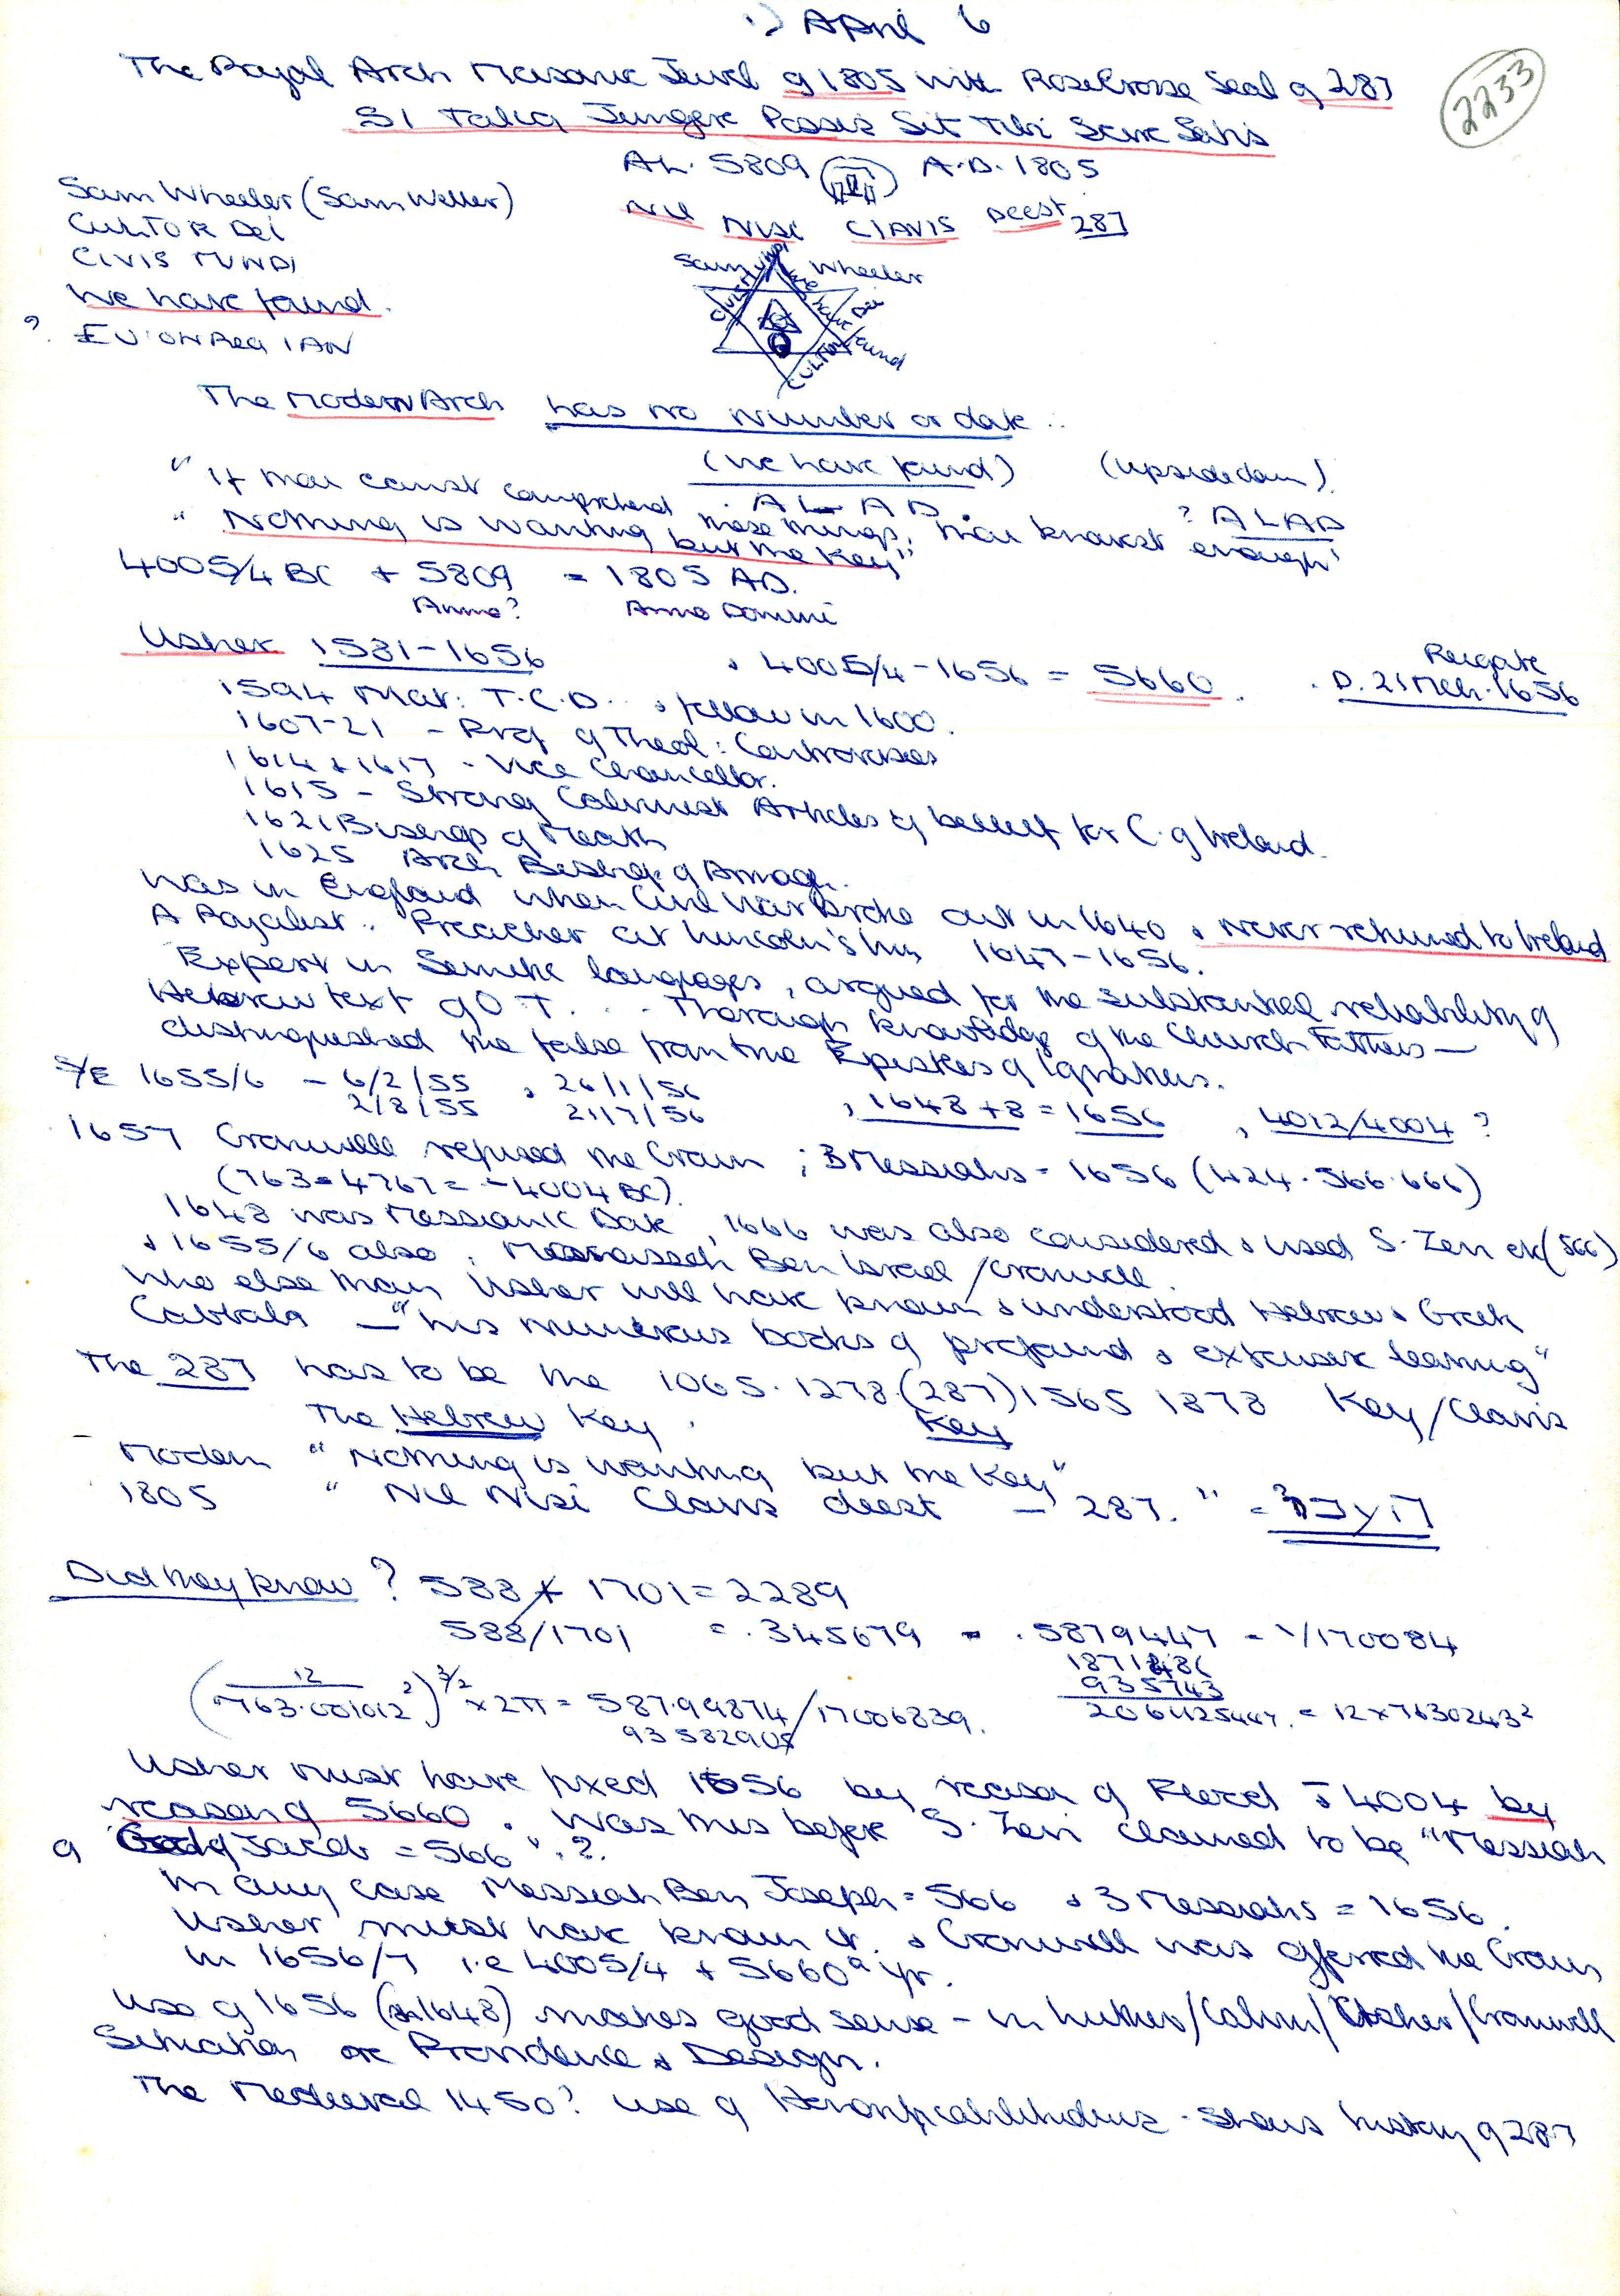 1) April 6
2233
The Royal Arch Masonic Jewel of 1805 with RoseCrosse Seal of 287
SI Talia Jungere Possis Sit Tibi Scire Satis
AL. 5809 A.D. 1805
Nil Nisi CLAVIS Deest 287
Sam Wheeler (Sam Weller)
CULTOR Dei
CIVIS MUNDI
We have found.
?
Sam Wheeler
CIVIS MUNDI
We have found
CULTOR Dei
The Modern Arch has no number or date ..
(We have found) (upside down)
"If thou canst comprehend these things, thou knowest enough"
AL AD. ? ALAD
"Nothing is wanting but the Key"
4005/4 BC + 5809 = 1805 AD.
Anno? Anno Domini
Usher 1581-1656 & 4005/4 - 1656 = 5660. Reigate
D. 21 Mch. 1656
1594 Mat: T.C.D. & fellow in 1600.
1607-21 - Prof of Theol: Controversies
1614 & 1617 - Vice Chancellor.
1615 - Strong Calvinist Articles of belief for C. of Ireland.
1621 Bishop of Meath
1625 Arch Bishop of Armagh.
Was in England when Civil War broke out in 1640 & never returned to Ireland
A Royalist .. Preacher at Lincoln's Inn 1647-1656.
Expert in Semitic languages, argued for the substantial reliability of
Hebrew text of O T. ... Thorough knowledge of the Church Fathers —
distinguished the false from true Epistles of Ignatius.
S/E 1655/6 - 6/2/55 , 26/1/56
2/8/55 21/7/56 , 1648 + 8 = 1656 , 4012/4004 ?
1657 Cromwell refused the Crown ; 3 Messiahs = 1656 (424. 566. 666)
(763 = 4767 = -4004 BC).
1648 was Messianic Date , 1666 was also considered & used S. Zevi etc (566)
& 1655/6 also . Manasseh Ben Israel / Cromwell .
Who else than Usher will have known & understood Hebrew & Greek
Cabbala — "his numerous books of profound & extensive learning"
The 287 has to be the 1065. 1278. (287) 1565 1878 Key/Clavis
The Hebrew Key . Key
- Modern "Nothing is wanting but the Key"
1805 " Nil Nisi Clavis deest — 287. " =
Did they know ? 588 + 1701 = 2289
588/1701 = .345679 = .5879447 = 1/170084
1871486
935743
(12 / 763.001012²)^3/2 × 2π = 587.99874/17006839. 206425447. = 12 × 7630243²
93582905
Usher must have fixed 1656 by reason of Flood & 4004 by
reason of 5660 . Was this before S. Zevi claimed to be "Messiah
of God of Jacob = 566 ". ?.
In any case Messiah Ben Joseph = 566 & 3 Messiahs = 1656 .
Usher must have known it. & Cromwell was offered the Crown
in 1656/7 i.e 4005/4 + 5660ᵃ yr.
Use of 1656 (& 1648) makes good sense - in Luther/Calvin/Usher/Cromwell
Situation re Providence & Design.
The Medieval 1450? use of - shows history of 287